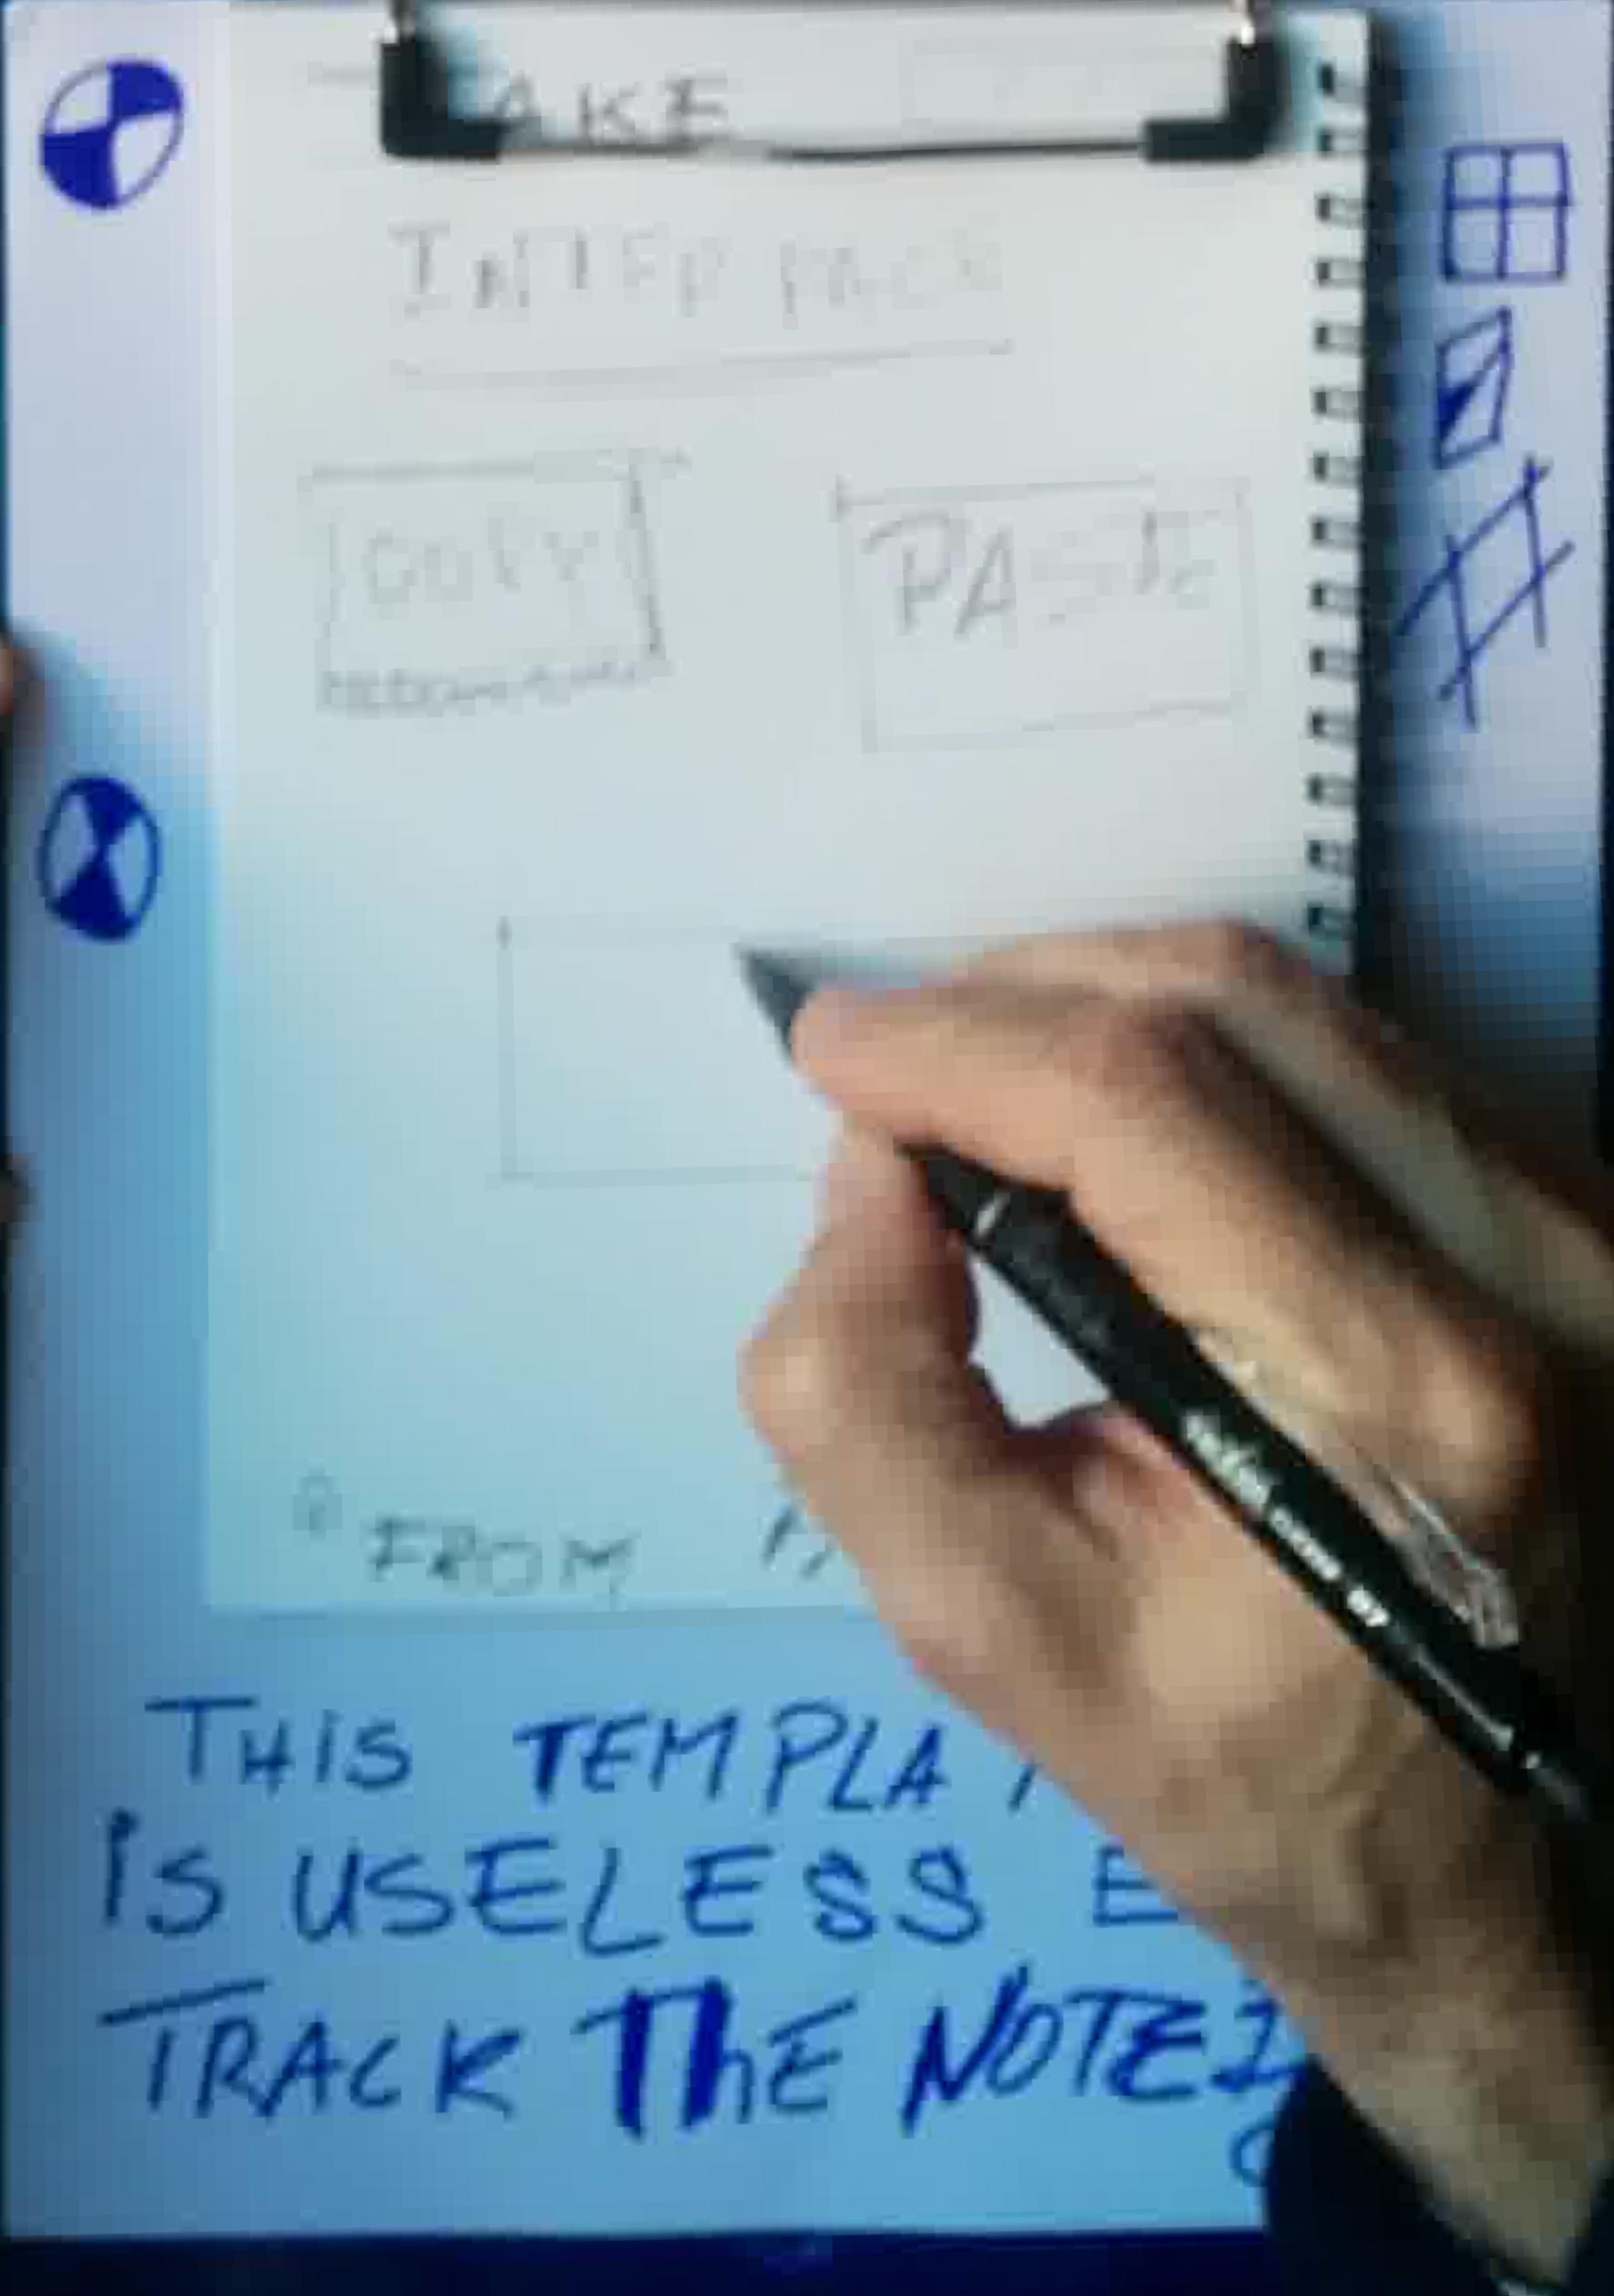 AKE
INTER PACK
COPY
PASTE
FROM
THIS TEMPLA
IS USELESS E
TRACK THE NOTE